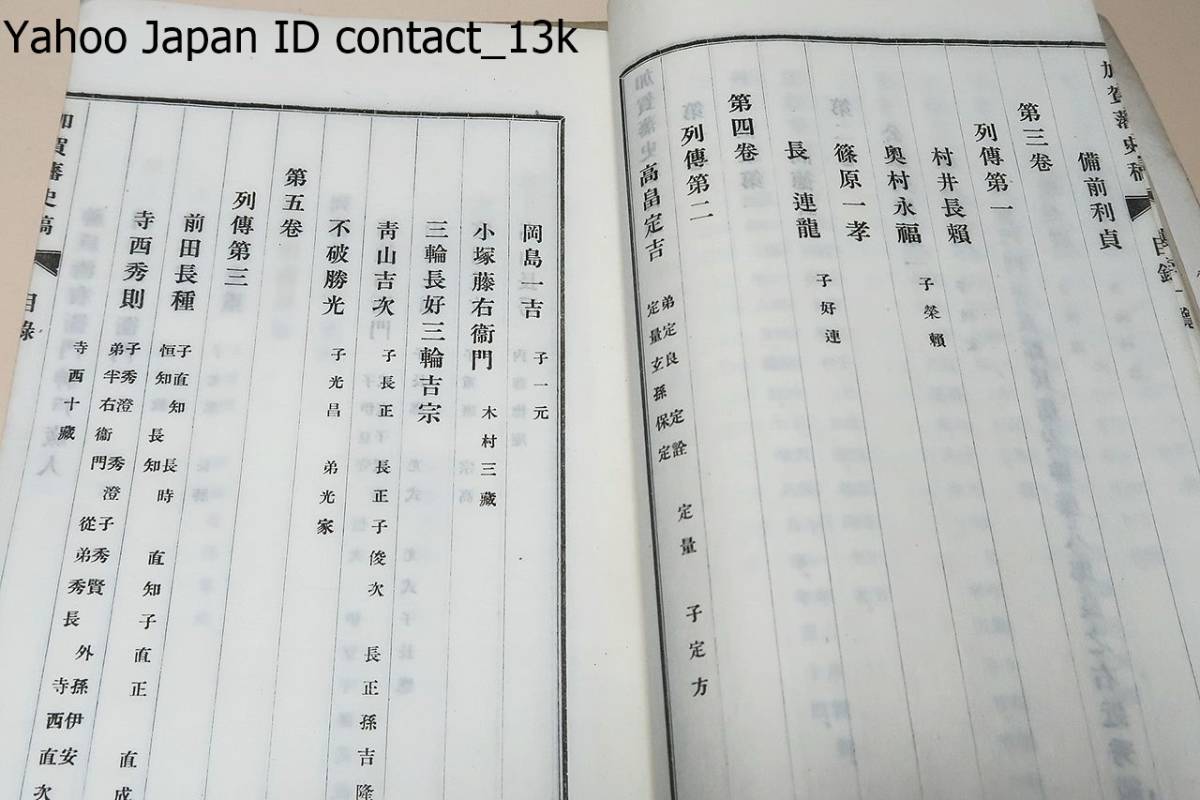 Yahoo Japan ID contact_13k
加賀藩史稿
目錄
備前利貞
第三卷
列傳第一
村井長賴
奧村永福 子榮賴
篠原一孝
長連龍 子好連
第四卷
列傳第二
高畠定吉 弟定良 定詮 定量 子定方
加賀藩史
岡島一吉 子一元
小塚藤右衞門 木村三藏
三輪長好三輪吉宗
靑山吉次 子長正 長正子俊次 長正孫吉隆
不破勝光 子光昌 弟光家
第五卷
列傳第三
前田長種 子直知 恒知 長知 長時 直知子直正 直成
寺西秀則 子秀澄 弟半右衞門 秀澄子秀賢 從弟秀長 外孫伊安 寺西直次
寺西十藏
加賀藩史稿
目錄